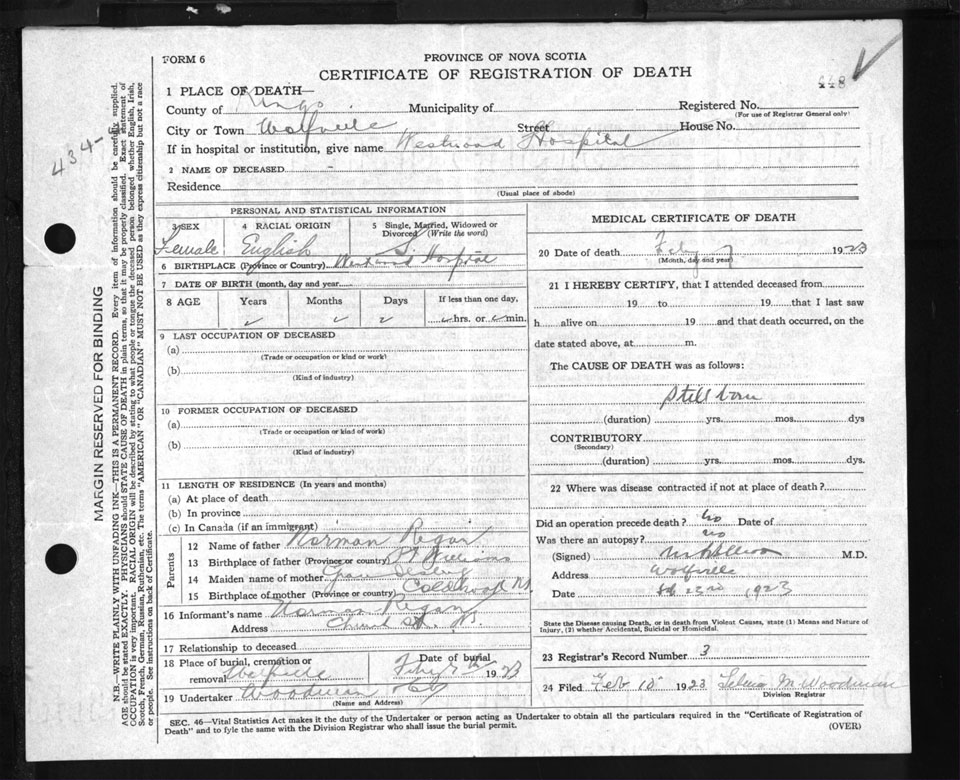 FORM 6
PROVINCE OF NOVA SCOTIA
CERTIFICATE OF REGISTRATION OF DEATH
448
434-
1 PLACE OF DEATH—
County of Kings Municipality of Registered No.
(For use of Registrar General only)
City or Town Wolfville Street House No.
If in hospital or institution, give name Westwood Hospital
2 NAME OF DECEASED
Residence
(Usual place of abode)
PERSONAL AND STATISTICAL INFORMATION
3 SEX 4 RACIAL ORIGIN 5 Single, Married, Widowed or Divorced (Write the word)
Female English S.
6 BIRTHPLACE (Province or Country) Westwood Hospital
7 DATE OF BIRTH (month, day and year)
8 AGE Years Months Days If less than one day,
hrs. or min.
9 LAST OCCUPATION OF DECEASED
(a)
(Trade or occupation or kind or work)
(b)
(Kind of industry)
10 FORMER OCCUPATION OF DECEASED
(a)
(Trade or occupation or kind of work)
(b)
(Kind of industry)
11 LENGTH OF RESIDENCE (In years and months)
(a) At place of death
(b) In province
(c) In Canada (if an immigrant)
Parents
12 Name of father Norman Regan
13 Birthplace of father (Province or country) Pt Williams
14 Maiden name of mother
15 Birthplace of mother (Province or country) Coldbrook
16 Informant's name Norman Regan
Address Church St.
17 Relationship to deceased
18 Place of burial, cremation or removal Wolfville Date of burial Feby 1923
19 Undertaker Woodman & Co
(Name and Address)
MEDICAL CERTIFICATE OF DEATH
20 Date of death Feby 7 1923
(Month, day and year)
21 I HEREBY CERTIFY, that I attended deceased from
19 to 19 that I last saw
h alive on 19 and that death occurred, on the
date stated above, at m.
The CAUSE OF DEATH was as follows:
Still born
(duration) yrs. mos. dys
CONTRIBUTORY
(Secondary)
(duration) yrs. mos. dys.
22 Where was disease contracted if not at place of death?
Did an operation precede death? No Date of
Was there an autopsy? no
(Signed) M.D.
Address Wolfville
Date 23rd 1923
State the Disease causing Death, or in death from Violent Causes, state (1) Means and Nature of Injury, (2) whether Accidental, Suicidal or Homicidal.
23 Registrar's Record Number 3
24 Filed Feb 10 1923 M Woodman
Division Registrar
SEC. 46—Vital Statistics Act makes it the duty of the Undertaker or person acting as Undertaker to obtain all the particulars required in the "Certificate of Registration of
Death" and to fyle the same with the Division Registrar who shall issue the burial permit. (OVER)
MARGIN RESERVED FOR BINDING
N.B.—WRITE PLAINLY WITH UNFADING INK—THIS IS A PERMANENT RECORD. Every item of information should be carefully supplied.
AGE should be stated EXACTLY. PHYSICIANS should STATE CAUSE OF DEATH in plain terms, so that it may be properly classified. Exact statement of
OCCUPATION is very important. RACIAL ORIGIN will be described by stating to what people or tongue the deceased person belonged whether English, Irish,
Scotch, French, German, Russian, Ruthenian, etc. The terms "AMERICAN" OR "CANADIAN" MUST NOT BE USED as they express citizenship but not a race
or people. See instructions on back of Certificate.